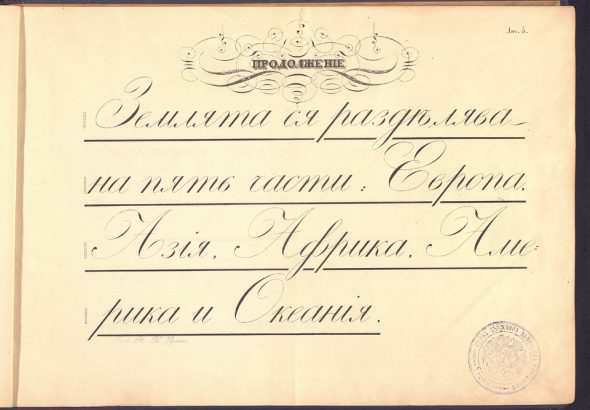 Лис. 5.
ПРОДОЛЖЕНІЕ
Землята ся раздѣлява
на пять части: Европа,
Азія, Африка, Аме-
рика и Океанія.